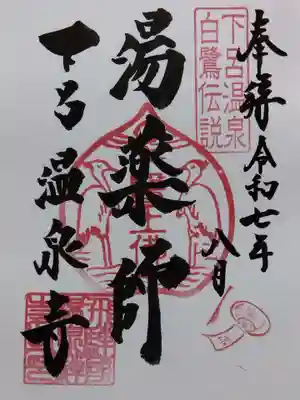 奉拝 令和七年
八月
下呂温泉
白鷺伝説
湯薬師
下呂温泉寺